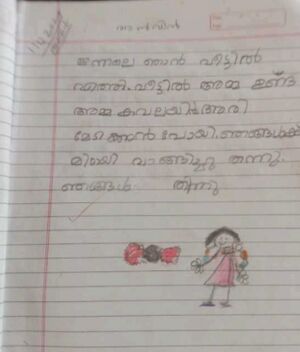 ആൻവിൻ
ഇന്നലെ ഞാൻ വീട്ടിൽ
എത്തി. വീട്ടിൽ അമ്മ ഉണ്ട്
അമ്മ കവലയിൽ അരി
മേടിക്കാൻ പോയി. ഞങ്ങൾക്ക്
മിഠായി വാങ്ങിച്ചു തന്നു.
ഞങ്ങൾ തിന്നു